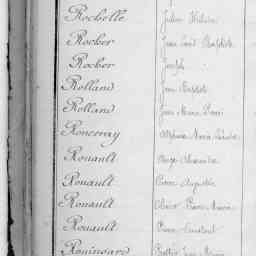 Rochelle Julien
Rocher Jean Louis Baptiste
Rocher Joseph
Rolland Jean Baptiste
Rolland Jean Marie
Ronceray Alphonse Marie
Rouault Ange Alexandre
Rouault Pierre Auguste
Rouault Olivier Pierre Marie
Rouault Pierre Constant
Rouinsard